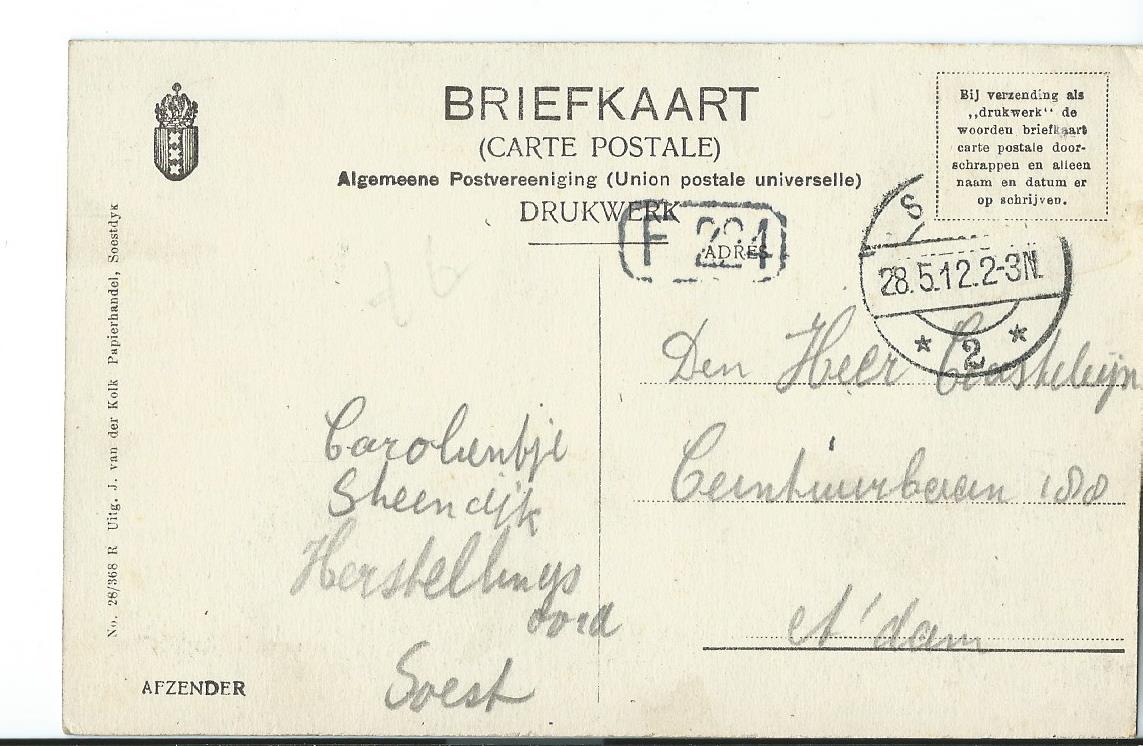 BRIEFKAART
(CARTE POSTALE)
Algemeene Postvereeniging (Union postale universelle)
DRUKWERK
ADRES
Bij verzending als
„drukwerk“ de
woorden briefkaart
carte postale door-
schrappen en alleen
naam en datum er
op schrijven.
F 224
S
28.5.12.2-3N.
* 2 *
Den Heer Casteleijn
Ceintuurbaan 188
A'dam
Carolientje
Steendijk
Herstellings
oord
Soest
AFZENDER
No. 28/368 R Uitg. J. van der Kolk Papierhandel, Soestdyk